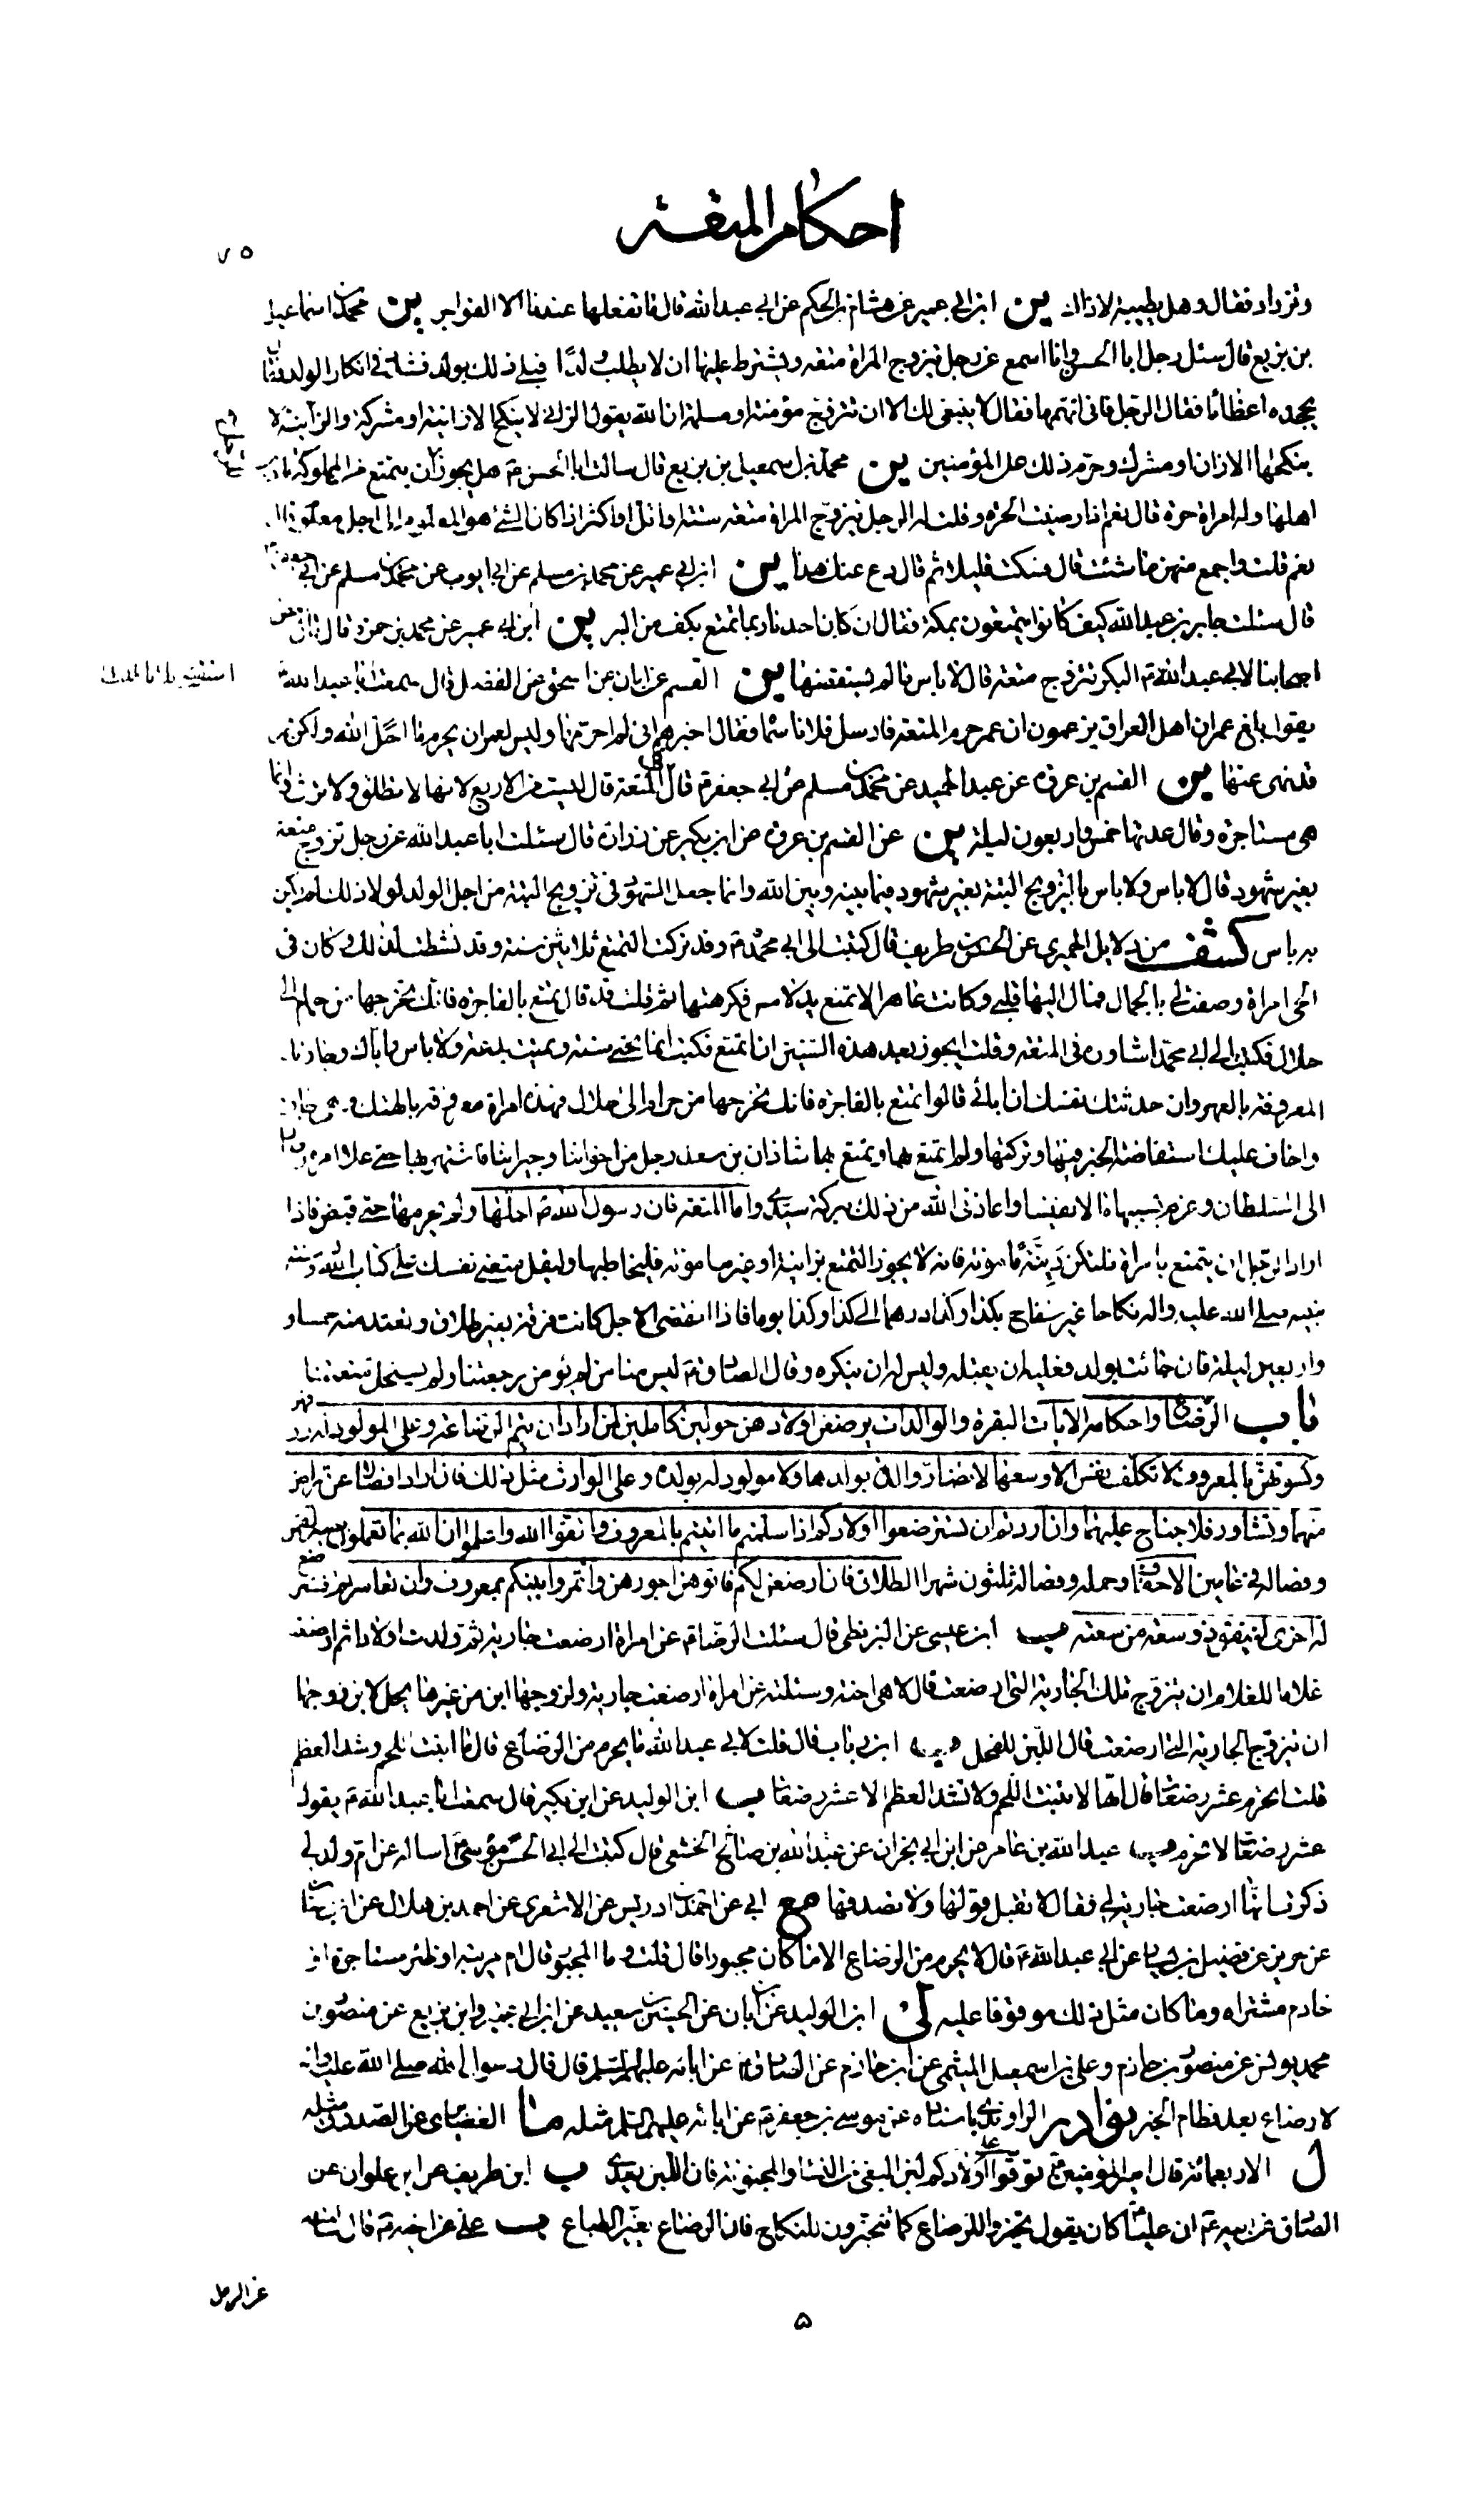 احكام المتعة
٧٥
وتزداد فقال وهل يطيبه الا ذاك ين ابن ابي عمير عن هشام بن الحكم عن ابي عبد الله قال ما تفعلها عندنا الا الفواجر ين محمد بن اسماعيل
بن بزيع قال سئل رجل ابا الحسن وانا اسمع عن رجل تيزوج المراة متعة ويشترط عليها ان لا يطلب ولدا فياتي بعد ذلك بولد فشدد في انكار الولد فقال
يجحده اعظاما فقال الرجل فاني اتهمها فقال لا ينبغي لك الا ان تتزوج مؤمنة او مسلمة ان الله يقول الزاني لا ينكح الا زانية او مشركة والزانية لا
ينكحها الا زان او مشرك وحرم ذلك على المؤمنين ين محمد بن اسمعيل بن بزيع قال سالت ابا الحسن ع هل يجوز ان يتمتع من المملوكة باذن
اهلها وله امراة حرة قال نعم اذا رضيت الحرة وقلت له الرجل تيزوج المراة متعة سنة او اقل او اكثر اذا كان الشئ هو المعلوم الى اجل معلوم قال
نعم قلت واجمع منهن ما شئت قال فسكت قليلا ثم قال دع عنك هذا ين ابن ابي عمير عن محمد بن مسلم عن ابي ايوب عن محمد بن مسلم عن ابي جعفر ع
قال سئلت جابر بن عبد الله كيف كانوا يتمتعون بمكة فقال ان كان احدنا ربما تمتع بكف من البر ين ابن ابي عمير عن محمد بن حمزة قال قال بعض
اصحابنا لابي عبد الله ع البكر تتزوج متعة قال لا باس ما لم يستفتضها ين القسم عن ابان عن اسحق عن الفضل قال سمعت ابا عبد الله ع
يقول بلغ عمر ان اهل العراق يزعمون ان عمر حرم المتعة فارسل فلانا سماه فقال اخبرهم اني لم احرمها وليس لعمر ان يحرم ما احل الله ولكن عمر
قد نهى عنها ين القسم بن عروة عن عبد الحميد عن محمد بن مسلم عن ابي جعفر ع قال في المتعة قال ليست من الاربع لانها لا تطلق ولا ترث وانما
هي مستاجرة وقال عدتها خمس واربعون ليلة ين عن القسم بن عروة عن ابن بكير عن زرارة قال سئلت ابا عبد الله عن رجل تزوج متعة
بغير شهود قال لا باس ولا باس بالتزويج البتة بغير شهود فيما بينه وبين الله وانما جعل الشهود في تزويج البتة من اجل الولد لولا ذلك لم يكن
به باس كشف من دلايل الحميري عن الحسن بن طريف قال كتبت الى ابي محمد ع وقد تركت التمتع ثلاثين سنة وقد نشطت لذلك وكان في
الحي امراة وصفت لي بالجمال فمال اليها قلبي وكانت عاهرا لا تمنع يد لامس فكرهتها ثم قلت قد قال تمتع بالفاجرة فانك تخرجها من حرام الى
حلال فكتبت الى ابي محمد اشاوره في المتعة وقلت ايجوز بعد هذه السنين ان اتمتع فكتب انما تحيي سنة وتميت بدعة ولا باس واياك وجارتك
المعروفة بالعهر وان حدثتك نفسك ان ابائي قالوا تمتع بالفاجرة فانك تخرجها من حرام الى حلال فهذه امراة معروفة بالهتك وهي جارة
واخاف عليك استفاضة الخبر فيها وتركتها ولم اتمتع بها وتمتع بها شاذان بن سعد رجل من اخواننا وجيراننا فاشتهر بها حتى علا امره وصار
الى السلطان وغرم بسببها مالا نفيسا واعاذني الله من ذلك ببركة سيدي واما المتعة فان رسول الله ص احلها ولم يحرمها حتى قبض فاذا
اراد الرجل ان يتمتع بامراة فلتكن دينة مامونة فانه لا يجوز التمتع بزانية او غير مامونة فليخاطبها وليقل متعيني نفسك على كتاب الله وسنة
نبيه صلى الله عليه واله نكاحا غير سفاح بكذا وكذا درهما الى كذا وكذا يوما فاذا انقضى الاجل كانت فرقة بغير طلاق وتعتد منه خمسا و
واربعين ليلة فان جائت بولد فعليه ان يقبله وليس له ان ينكره وقال الصادق ع ليس منا من لم يؤمن برجعتنا ولم يستحل متعتنا
باب الرضاع واحكامه الايات البقرة والوالدات يرضعن اولادهن حولين كاملين لمن اراد ان يتم الرضاعة وعلى المولود له رزقهن
وكسوتهن بالمعروف لا تكلف نفس الا وسعها لا تضار والدة بولدها ولا مولود له بولده وعلى الوارث مثل ذلك فان ارادا فصالا عن تراض
منهما وتشاور فلا جناح عليهما وان اردتم ان تسترضعوا اولادكم اذا سلمتم ما اتيتم بالمعروف واتقوا الله واعلموا ان الله بما تعملون بصير لقمن
وفصاله في عامين الاحقاف وحمله وفصاله ثلثون شهرا الطلاق فان ارضعن لكم فاتوهن اجورهن واتمروا بينكم بمعروف وان تعاسرتم فسترضع
له اخرى لينفق ذو سعة من سعته ب ابن عيسى عن البزنطي قال سئلت الرضا ع عن امراة ارضعت جارية ثم ولدت اولادا ثم ارضعت
غلاما للغلام ان يتزوج تلك الجارية التي ارضعت قال لا هي اخته وسئلته عن امراة ارضعت جارية ولزوجها ابن من غيرها يحل لابن زوجها
ان تيزوج الجارية التي ارضعت قال اللبن للفحل ب ابن رئاب قال قلت لابي عبد الله ما يحرم من الرضاع قال ما انبت اللحم وشد العظم
قلت ايحرم عشر رضعات قال لا انها لا تنبت اللحم ولا تشد العظم الا عشر رضعات ب ابن الوليد عن ابن بكير قال سمعت ابا عبد الله ع يقول
عشر رضعات لا تحرم ب عبد الله بن عامر عن ابن ابي نجران عن عبد الله بن صالح الخثعمي قال كتبت الى ابي الحسن موسى ع اساله عن ام ولد لي
ذكرت انها ارضعت جارية لي فقال لا تقبل قولها ولا تصدقها مع ابي عن احمد بن ادريس عن الاشعري عن احمد بن هلال عن ابن سنان
عن حريز عن فضيل بن يسار عن ابي عبد الله ع قال لا يحرم من الرضاع الا ما كان مجبورا قال قلت وما المجبور قال ام مربية او ظئر مستاجرة او
خادم مشتراة وما كان مثل ذلك موقوفا عليه لى ابن الوليد عن ابن ابان عن الحسين بن سعيد عن ابن ابي عمير وابن بزيع عن منصور بن
محمد يونس عن منصور بن حازم وعلي بن اسمعيل الميثمي عن ابن حازم عن الصادق ع عن ابائه عليهم السلم قال قال رسول الله صلى الله عليه واله
لا رضاع بعد فطام الخبر نوادر الراوندي باسناده عن موسى بن جعفر ع عن ابائه عليهم السلم مثله ما الغضايري عن الصدوق مثله
ل الاربعمائة قال امير المؤمنين ع توقوا على اولادكم لبن البغي من النساء والمجنونة فان اللبن يعدي ب ابن طريف عن ابن علوان عن
الصادق عن ابيه ع ان عليا ع كان يقول تخيروا للرضاع كما تتخيرون للنكاح فان الرضاع يغير الطباع ب علي عن اخيه ع قال سالته
عن الرجل
۵